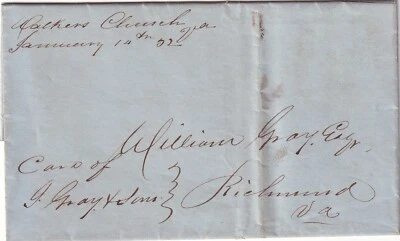 Oakers Church Va
January 14th 52
William Gray, Esqr
Care of
J. Gray & Sons
Richmond
Va